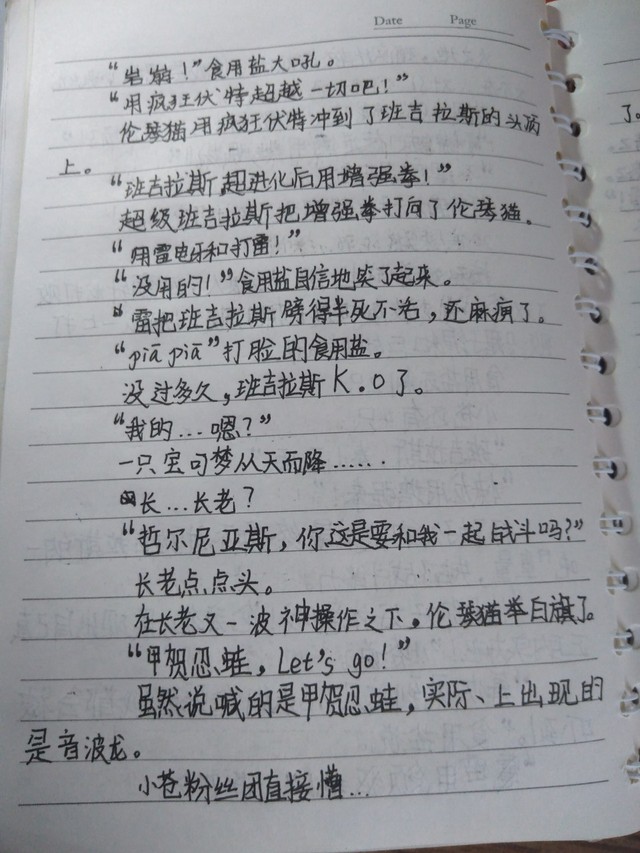 Date Page
“岩崩！”食用盐大吼。
“用疯狂伏特超越一切吧！”
伦琴猫用疯狂伏特冲到了班吉拉斯的头顶
上。
“班吉拉斯,超进化后用增强拳！”
超级班吉拉斯把增强拳打向了伦琴猫。
“用雷电牙和打雷！”
“没用的！”食用盐自信地笑了起来。
“雷把班吉拉斯劈得半死不活，还麻痹了。
“piā piā”打脸的食用盐。
没过多久，班吉拉斯K.O了。
“我的...嗯？”
一只宝可梦从天而降……
长...长老？
“哲尔尼亚斯，你这是要和我一起战斗吗？”
长老点点头。
在长老又一波神操作之下。伦琴猫举白旗了。
“甲贺忍蛙，Let's go!”
虽然说喊的是甲贺忍蛙，实际上出现的
是音波龙。
小苍粉丝团直接懵...